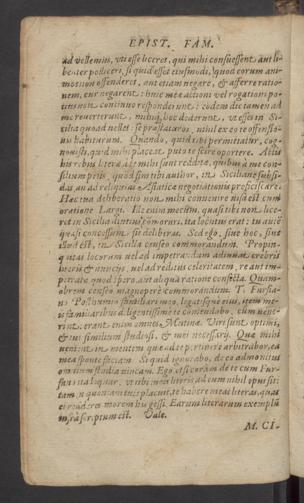 EPIST. FAM.
ad vellemius, vti esse liceret, qui mihi consuessent aut li-
benter polliceri, si quid esset eiusmodi, quod eorum ani-
mos non offenderet, aut etiam negare, & afferre ratio-
nem, cur negarent: hinc meæ actioni vel rogationi po-
tius non continuo responderunt: eodem die tamen ad
me reuerterunt, mihiq; hoc dederunt, vt esses in Si-
cilia quoad velles: se præstaturos, nihil ex eo te offensio-
nis habiturum. Quando, quid tibi permittatur, cog-
nosti, quid mihi placeat, puto te scire oportere. Actis
his rebus literæ à te mihi sunt redditæ, quibus à me con-
silium petis, quod sim tibi author, in Siciliane subsi-
das, an ad reliquias Asiaticæ negotiationis proficiscare.
Hæc tua deliberatio non mihi conuenire visa est cum
oratione Largi. Ille enim mecum, quasi tibi non lice-
ret in Sicilia diutius commorari, ita locutus erat: tu autē
quasi concessum sit deliberas. Sed ego, siue hoc, siue
illud est, in Sicilia censeo commorandum. Propin-
quitas locorum vel ad impetrandum adiuuat crebris
literis & nunciis, vel ad reditus celeritatem, re aut im-
petrata quod spero, aut aliqua ratione confecta. Quam-
obrem censeo magnopere commorandum. T. Furfa-
no Posthumio familiari meo, legatisque eius, item me-
is familiaribus diligentissimè te commendabo, cum vene-
rint: erant enim omnes Mutinæ. Viri sunt optimi,
& tui similium studiosi, & mei necessarij. Quæ mihi
venient in mentem quæ ad te pertinere arbitrabor, ea
mea sponte faciam. Si quid ignorabo, de eo admonitus
omnium studia vincam. Ego, etsi coràm de te cum Fur-
fano ita loquar, vt tibi meis literis ad eum nihil opus sit:
tamen quoniam tuis placuit, te habere meas literas, quas
ei redderes morem his gessi. Earum literarum exemplū
infrà scriptum est. Vale.
M. CI-